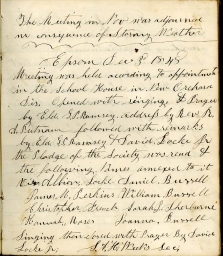 The Meeting on Nov was adjourned
in consequence of Stormy Weather
Epsom Dec 8 1845
Meeting was held according to appointment
in the School House in
Dis. Opened with singing, & Prayer
by Eld. G. P. Ramsey. Address by Rev. R.
Putnam followed with remarks
by Eld. G. P. Ramsey & David Locke Jr
the Pledge of the Society was read &
the following Names annexed to it
Locke Daniel Burrell
James M. Perkins William Burrell
Christopher French Sarah J. Sherburne
Hannah Moses Joanna Burrell
Singing then closed with Prayer By David
Locke Jr. Sec